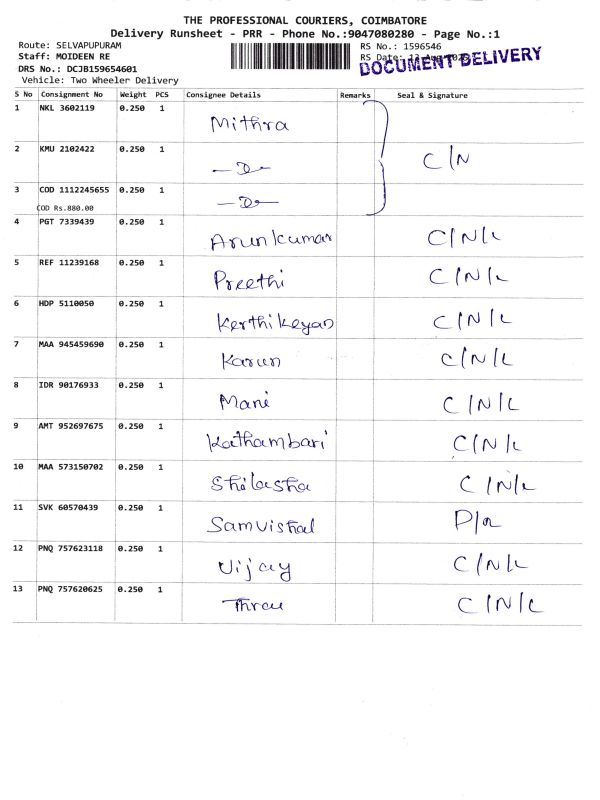 THE PROFESSIONAL COURIERS, COIMBATORE
Delivery Runsheet - PRR - Phone No.:9047080280 - Page No.:1
Route: SELVAPUPURAM
RS No.: 1596546
Staff: MOIDEEN RE
RS Date:
DOCUMENT DELIVERY
DRS No.: DCJB159654601
Vehicle: Two Wheeler Delivery
S No Consignment No Weight PCS Consignee Details Remarks Seal & Signature
1 NKL 3602119 0.250 1 Mithra
2 KMU 2102422 0.250 1 C/N
3 COD 1112245655 0.250 1
COD Rs.880.00
4 PGT 7339439 0.250 1 Arunkumar C/N/L
5 REF 11239168 0.250 1 Preethi C/N/L
6 HDP 5110050 0.250 1 Kerthikeyan C/N/L
7 MAA 945459690 0.250 1 Karun C/N/L
8 IDR 90176933 0.250 1 Mani C/N/L
9 AMT 952697675 0.250 1 Kathambari C/N/L
10 MAA 573150702 0.250 1 C/N/L
11 SVK 60570439 0.250 1 Samvishal
12 PNQ 757623118 0.250 1 Vijay C/N/L
13 PNQ 757620625 0.250 1 C/N/L